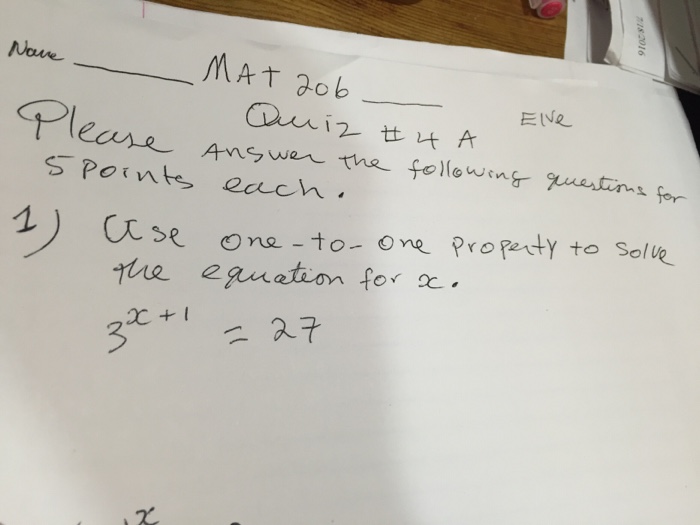 Name ______ MAT 206 ____
Quiz # 4 A EIVe
Please Answer the following questions for
5 points each.
1) Use one-to-one property to solve
the equation for x.
3^{x+1} = 27
x